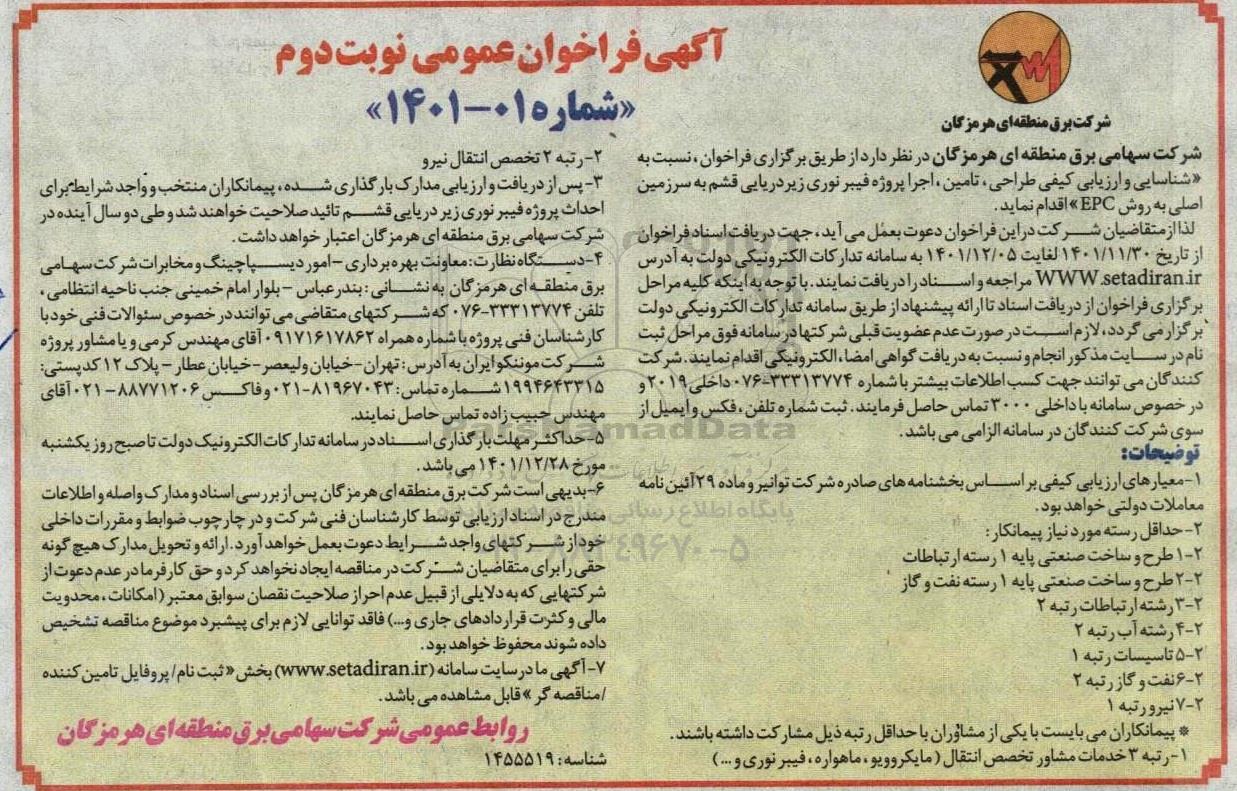 شرکت برق منطقه‌ای هرمزگان
آگهی فراخوان عمومی نوبت دوم
«شماره ۰۱-۱۴۰۱»
شرکت سهامی برق منطقه ای هرمزگان در نظر دارد از طریق برگزاری فراخوان ، نسبت به
«شناسایی و ارزیابی کیفی طراحی ، تامین ، اجرا پروژه فیبر نوری زیردریایی قشم به سرزمین
اصلی به روش EPC» اقدام نماید .
لذا از متقاضیان شرکت در این فراخوان دعوت بعمل می آید ، جهت دریافت اسناد فراخوان
از تاریخ ۱۴۰۱/۱۱/۳۰ لغایت ۱۴۰۱/۱۲/۰۵ به سامانه تدارکات الکترونیکی دولت به آدرس
WWW.setadiran.ir مراجعه و اسناد را دریافت نمایند . با توجه به اینکه کلیه مراحل
برگزاری فراخوان از دریافت اسناد تا ارائه پیشنهاد از طریق سامانه تدارکات الکترونیکی دولت
برگزار می گردد ، لازم است در صورت عدم عضویت قبلی شرکتها در سامانه فوق مراحل ثبت
نام در سایت مذکور انجام و نسبت به دریافت گواهی امضاء الکترونیکی اقدام نمایند . شرکت
کنندگان می توانند جهت کسب اطلاعات بیشتر با شماره ۳۳۳۱۳۷۷۴-۰۷۶ داخلی ۲۰۱۹ و
در خصوص سامانه با داخلی ۳۰۰۰ تماس حاصل فرمایند . ثبت شماره تلفن ، فکس و ایمیل از
سوی شرکت کنندگان در سامانه الزامی می باشد .
توضیحات:
۱- معیارهای ارزیابی کیفی بر اساس بخشنامه های صادره شرکت توانیر و ماده ۲۹ آئین نامه
معاملات دولتی خواهد بود .
۲- حداقل رسته مورد نیاز پیمانکار :
۲-۱ طرح و ساخت صنعتی پایه ۱ رسته ارتباطات
۲-۲ طرح و ساخت صنعتی پایه ۱ رسته نفت و گاز
۲-۳ رشته ارتباطات رتبه ۲
۲-۴ رشته آب رتبه ۲
۲-۵ تاسیسات رتبه ۱
۲-۶ نفت و گاز رتبه ۲
۲-۷ نیرو رتبه ۱
* پیمانکاران می بایست با یکی از مشاوران با حداقل رتبه ذیل مشارکت داشته باشند .
۱- رتبه ۳ خدمات مشاور تخصص انتقال ( مایکروویو ، ماهواره ، فیبر نوری و ... )
۲- رتبه ۲ تخصص انتقال نیرو
۳- پس از دریافت و ارزیابی مدارک بارگذاری شده ، پیمانکاران منتخب و واجد شرایط برای
احداث پروژه فیبر نوری زیر دریایی قشم تائید صلاحیت خواهند شد و طی دو سال آینده در
شرکت سهامی برق منطقه ای هرمزگان اعتبار خواهد داشت .
۴- دستگاه نظارت : معاونت بهره برداری - امور دیسپاچینگ و مخابرات شرکت سهامی
برق منطقه ای هرمزگان به نشانی : بندرعباس - بلوار امام خمینی جنب ناحیه انتظامی ،
تلفن ۳۳۳۱۳۷۷۴-۰۷۶ که شرکتهای متقاضی می توانند در خصوص سئوالات فنی خود با
کارشناسان فنی پروژه با شماره همراه ۰۹۱۷۱۶۱۷۸۶۲ آقای مهندس کرمی و یا مشاور پروژه
شرکت موننکو ایران به آدرس : تهران - خیابان ولیعصر - خیابان عطار - پلاک ۱۲ کدپستی:
۱۹۹۴۶۴۳۳۱۵ شماره تماس : ۸۱۹۶۷۰۴۳-۰۲۱ و فاکس ۸۸۷۷۱۲۰۶-۰۲۱ آقای
مهندس حبیب زاده تماس حاصل نمایند.
۵- حداکثر مهلت بارگذاری اسناد در سامانه تدارکات الکترونیک دولت تا صبح روز یکشنبه
مورخ ۱۴۰۱/۱۲/۲۸ می باشد .
۶- بدیهی است شرکت برق منطقه ای هرمزگان پس از بررسی اسناد و مدارک واصله و اطلاعات
مندرج در اسناد ارزیابی توسط کارشناسان فنی شرکت و در چارچوب ضوابط و مقررات داخلی
خود از شرکتهای واجد شرایط دعوت بعمل خواهد آورد . ارائه و تحویل مدارک هیچ گونه
حقی را برای متقاضیان شرکت در مناقصه ایجاد نخواهد کرد و حق کارفرما در عدم دعوت از
شرکتهایی که به دلایلی از قبیل عدم احراز صلاحیت نقصان سوابق معتبر ( امکانات ، محدویت
مالی و کثرت قراردادهای جاری و...) فاقد توانایی لازم برای پیشبرد موضوع مناقصه تشخیص
داده شوند محفوظ خواهد بود .
۷- آگهی ما در سایت سامانه (www.setadiran.ir) بخش « ثبت نام / پروفایل تامین کننده
/ مناقصه گر » قابل مشاهده می باشد .
روابط عمومی شرکت سهامی برق منطقه ای هرمزگان
شناسه : ۱۴۵۵۵۱۹
ParsNamadData
پایگاه اطلاع رسانی
۰۲۱-۸۸۳۴۹۶۷۰-۵